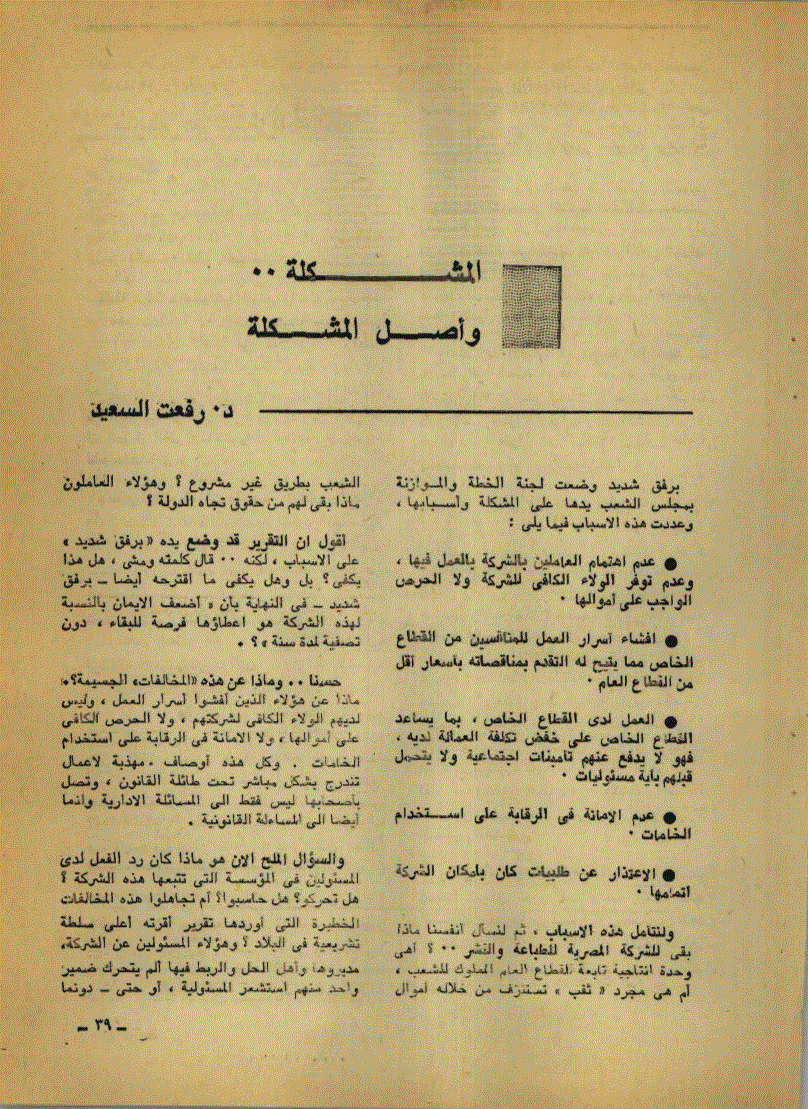 المشكلة ٠٠
وأصل المشكلة
د٠ رفعت السعيد
برفق شديد وضعت لجنة الخطة والموازنة
بمجلس الشعب يدها على المشكلة وأسبابها ،
وعددت هذه الاسباب فيما يلى :
● عدم اهتمام العاملين بالشركة بالعمل فيها ،
وعدم توفر الولاء الكافى للشركة ولا الحرص
الواجب على أموالها ٠
● افشاء أسرار العمل للمنافسين من القطاع
الخاص مما يتيح له التقدم بمناقصاته بأسعار أقل
من القطاع العام ٠
● العمل لدى القطاع الخاص ، بما يساعد
القطاع الخاص على خفض تكلفة العمالة لديه ،
فهو لا يدفع عنهم تأمينات اجتماعية ولا يتحمل
قبلهم بأية مسئوليات ٠
● عدم الامانة فى الرقابة على استخدام
الخامات ٠
● الاعتذار عن طلبيات كان بامكان الشركة
اتمامها ٠
ولنتأمل هذه الاسباب ، ثم لنسأل أنفسنا ماذا
بقى للشركة المصرية للطباعة والنشر ٠٠ ؟ أهى
وحدة انتاجية تابعة للقطاع العام المملوك للشعب ،
أم هى مجرد « ثقب » تستنزف من خلاله أموال
الشعب بطريق غير مشروع ؟ وهؤلاء العاملون
ماذا بقى لهم من حقوق تجاه الدولة ؟
أقول ان التقرير قد وضع يده « برفق شديد »
على الاسباب ، لكنه ٠٠ قال كلمته ومشى ، هل هذا
يكفى ؟ بل وهل يكفى ما اقترحه أيضا ــ برفق
شديد ــ فى النهاية بأن « أضعف الايمان بالنسبة
لهذه الشركة هو اعطاؤها فرصة للبقاء ، دون
تصفية لمدة سنة » ؟ ٠
حسنا ٠٠ وماذا عن هذه «المخالفات» الجسيمة؟٠
ماذا عن هؤلاء الذين أفشوا أسرار العمل ، وليس
لديهم الولاء الكافى لشركتهم ، ولا الحرص الكافى
على أموالها ، ولا الامانة فى الرقابة على استخدام
الخامات ٠ وكل هذه أوصاف ٠ مهذبة لاعمال
تندرج بشكل مباشر تحت طائلة القانون ، وتصل
بأصحابها ليس فقط الى المسائلة الادارية وانما
أيضا الى المساءلة القانونية ٠
والسؤال الملح الان هو ماذا كان رد الفعل لدى
المسئولين فى المؤسسة التى تتبعها هذه الشركة ؟
هل تحركوا؟ هل حاسبوا؟ أم تجاهلوا هذه المخالفات
الخطيرة التى أوردها تقرير أقرته أعلى سلطة
تشريعية فى البلاد ؟ وهؤلاء المسئولين عن الشركة،
مديروها وأهل الحل والربط فيها ألم يتحرك ضمير
واحد منهم استشعر المسئولية ، أو حتى ــ دونما
ــ ٣٩ ــ